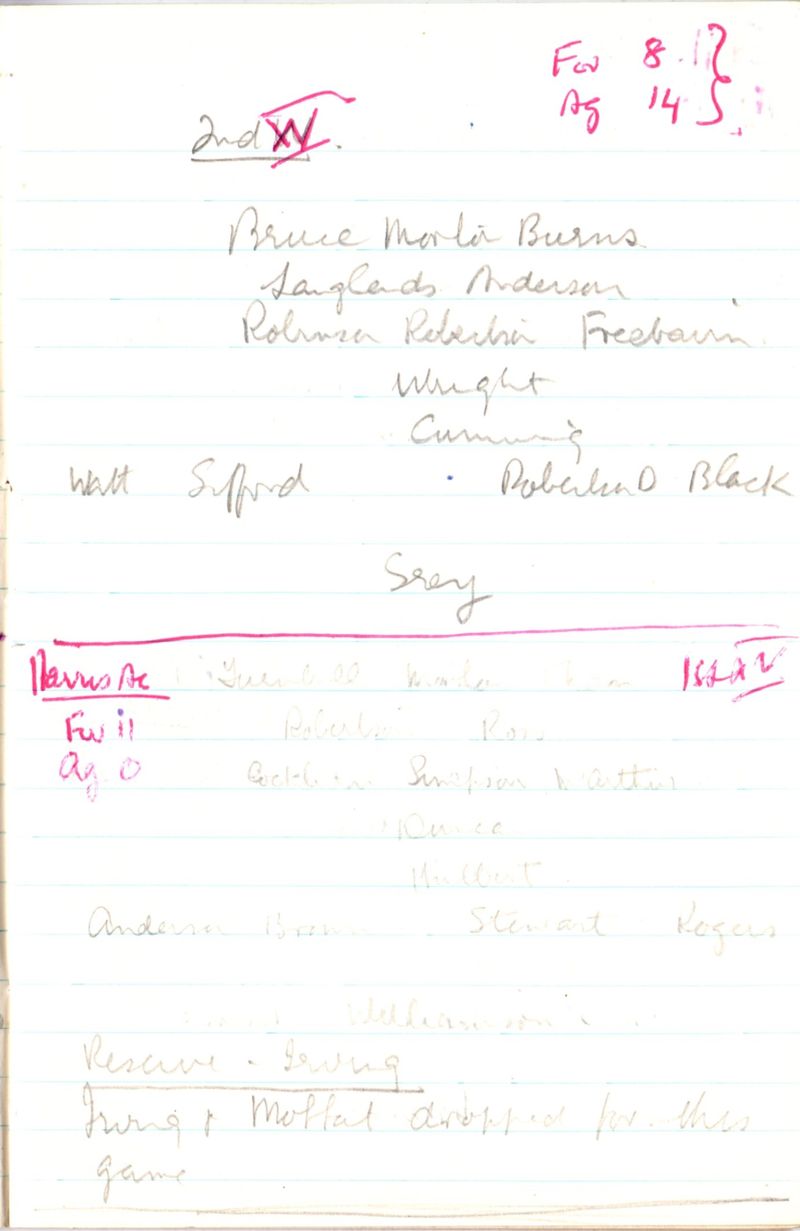 For 8
Ag 14
2nd XV.
Bruce Martin Burns
Langlands Anderson
Robinson Robertson Freebairn
Wright
Cumming
Watt Gifford Robertson D Black
Gray
Harris Ac Turnbull 1st XV
For 11 Robertson Ross
Ag 0
Cockburn Simpson McArthur
Duncan
Hulbert
Anderson Brown Stewart Rogers
Williamson
Reserve - Irving
Irving & Moffat dropped for this
game